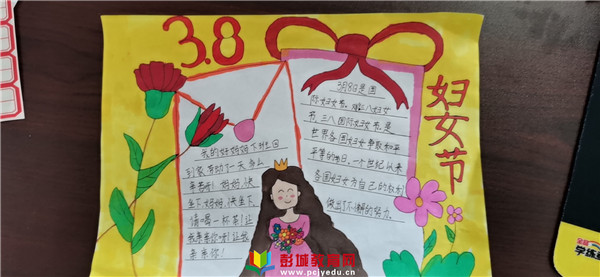 3.8
妇女节
我的好妈妈下班回
到家劳动了一天多么
辛苦呀!妈妈,快
坐下,妈妈,快坐下
请喝一杯茶!让
我亲亲你吧!让我
亲亲你!
3月8日是国
际妇女节,
节,三八国际妇女节,是
世界各国妇女争取和平
平等的节日,一个世纪以来
各国妇女为自己的权利
做出了不懈的努力。
彭城教育网
www.pcjyedu.cn
学练